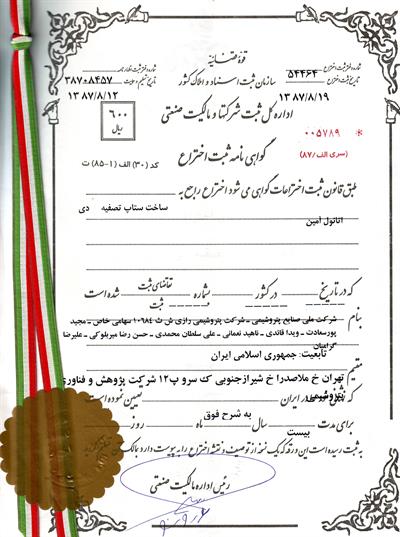 قوهٔ قضائیه
سازمان ثبت اسناد و املاک کشور
شماره دفتر ثبت اختراع ۵۴۴۶۴
تاریخ ثبت اختراع ۱۳۸۷/۸/۱۹
شماره دفتر ثبت اظهارنامه ۳۸۷۰۸۴۵۷
۱۳۸۷/۸/۱۲
اداره کل ثبت شرکتها و مالکیت صنعتی
۶۰۰
ریال
۰۰۵۷۸۹
(سری الف/۸۷)
گواهی نامه ثبت اختراع
کد (۳۰) الف (۱-۸۵) ت
طبق قانون ثبت اختراعات گواهی می شود اختراع راجع به
ساخت ستاپ تصفیه دی
اتانول آمین
که در تاریخ در کشور شماره تقاضای ثبت شده است
ثبت
بنام
شرکت ملی صنایع پتروشیمی – شرکت پتروشیمی رازی ش ث ۱۰۶۸۴ سهامی خاص – مجید
پورسعادت – ویدا قائدی – ناهید نعمانی – علی سلطان محمدی – حسن رضا میربلوکی – علیرضا
گرامیان
تابعیت: جمهوری اسلامی ایران
مقیم
تهران خ ملاصدرا خ شیرازجنوبی ک سرو پ۱۲ شرکت پژوهش و فناوری
پتروشیمی
که در ایران تعیین نموده است
برای مدت سال ماه روز
بیست
به شرح فوق
به ثبت رسیده است این ورقه که یک نسخه از توصیف و نقشه اختراع را به پیوست دارد
رئیس اداره مالکیت صنعتی